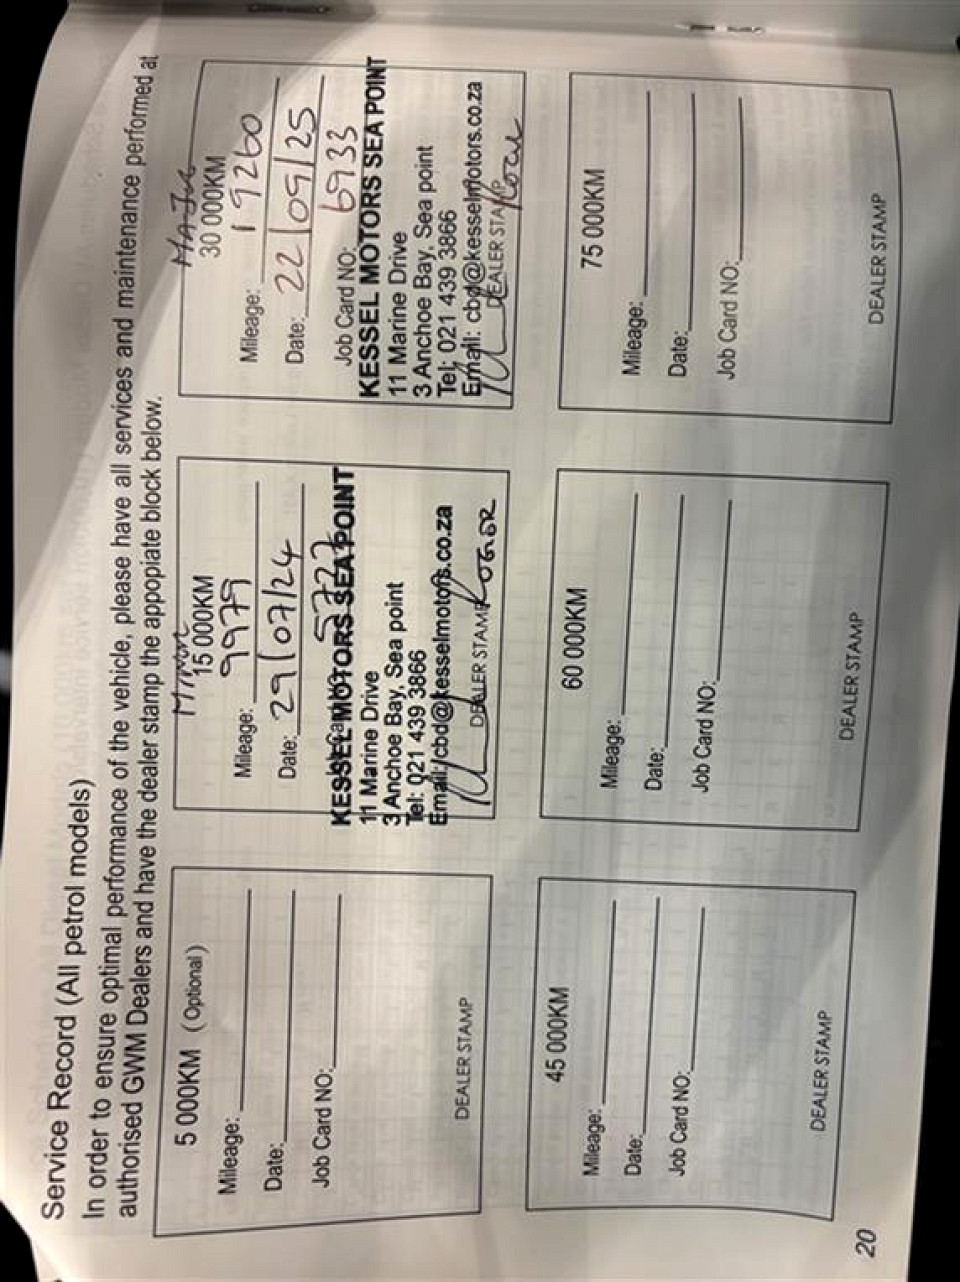 Service Record (All petrol models)
In order to ensure optimal performance of the vehicle, please have all services and maintenance performed at
authorised GWM Dealers and have the dealer stamp the appopiate block below.
5 000KM (Optional)
Mileage:
Date:
Job Card NO:
DEALER STAMP
Minor
15 000KM
Mileage: 9979
Date: 29/07/24
KESSEL MOTORS SEA POINT
11 Marine Drive
3 Anchoe Bay, Sea point
Tel: 021 439 3866
Email: cbd@kesselmotors.co.za
DEALER STAMP
ROGER
Major
30 000KM
Mileage: 19260
Date: 22/09/25
Job Card NO: 6933
KESSEL MOTORS SEA POINT
11 Marine Drive
3 Anchoe Bay, Sea point
Tel: 021 439 3866
Email: cbd@kesselmotors.co.za
DEALER STAMP
45 000KM
Mileage:
Date:
Job Card NO:
DEALER STAMP
60 000KM
Mileage:
Date:
Job Card NO:
DEALER STAMP
75 000KM
Mileage:
Date:
Job Card NO:
DEALER STAMP
20